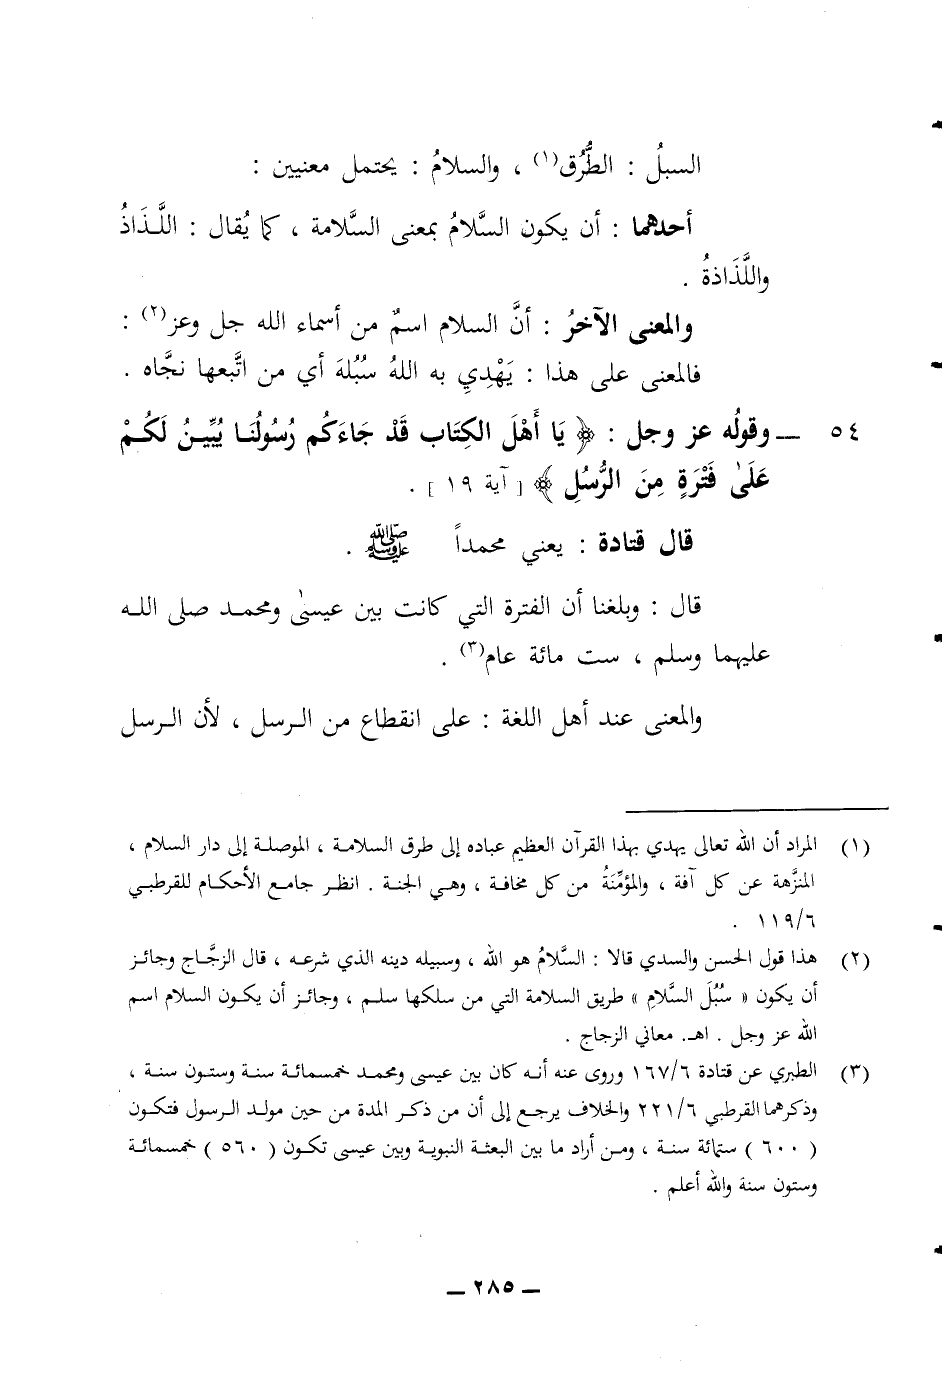 السبلُ : الطُّرُق(١) ، والسلامُ : يحتمل معنيين :
أحدهما : أن يكون السَّلامُ بمعنى السَّلامة ، كما يُقال : اللَّذَاذُ
واللَّذَاذةُ .
والمعنى الآخرُ : أنَّ السلام اسمٌ من أسماء الله جل وعز(٢) :
فالمعنى على هذا : يَهْدِي به اللهُ سُبُلهَ أي من اتَّبعها نجَّاه .
٥٤ ـ وقولُه عز وجل : ﴿ يَا أَهْلَ الكِتَاب قَدْ جَاءَكُم رُسُولُنَا يُبِّينُ لَكُمْ
عَلَىٰ فَتْرَةٍ مِنَ الرُّسُلِ ﴾ [ آية ١٩ ] .
قال قتادة : يعني محمداً ﷺ .
قال : وبلغنا أن الفترة التي كانت بين عيسىٰ ومحمد صلى الله
عليهما وسلم ، ست مائة عام(٣) .
والمعنى عند أهل اللغة : على انقطاع من الرسل ، لأن الرسل
(١) المراد أن الله تعالى يهدي بهذا القرآن العظيم عباده إلى طرق السلامة ، الموصلة إلى دار السلام ،
المنزَّهة عن كل آفة ، والمؤمِّنَةُ من كل مخافة ، وهي الجنة . انظر جامع الأحكام للقرطبي
١١٩/٦ .
(٢) هذا قول الحسن والسدي قالا : السَّلامُ هو الله ، وسبيله دينه الذي شرعه ، قال الزجَّاج وجائز
أن يكون « سُبُلَ السَّلامِ » طريق السلامة التي من سلكها سلم ، وجائز أن يكون السلام اسم
الله عز وجل . اهـ. معاني الزجاج .
(٣) الطبري عن قتادة ١٦٧/٦ وروى عنه أنه كان بين عيسى ومحمد خمسمائة سنة وستون سنة ،
وذكرهما القرطبي ٢٢١/٦ والخلاف يرجع إلى أن من ذكر المدة من حين مولد الرسول فتكون
( ٦٠٠ ) ستمائة سنة ، ومن أراد ما بين البعثة النبوية وبين عيسى تكون ( ٥٦٠ ) خمسمائة
وستون سنة والله أعلم .
ـ ٢٨٥ ـ